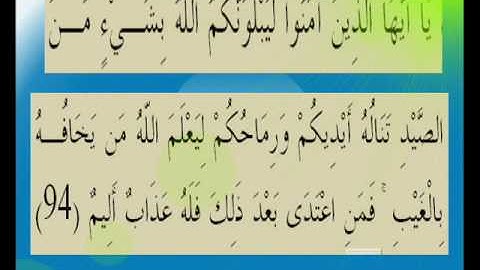 يَا أَيُّهَا الَّذِينَ آمَنُوا لَيَبْلُوَنَّكُمُ اللَّهُ بِشَيْءٍ مِّنَ
الصَّيْدِ تَنَالُهُ أَيْدِيكُمْ وَرِمَاحُكُمْ لِيَعْلَمَ اللَّهُ مَن يَخَافُهُ
بِالْغَيْبِ ۚ فَمَنِ اعْتَدَى بَعْدَ ذَلِكَ فَلَهُ عَذَابٌ أَلِيمٌ (94)